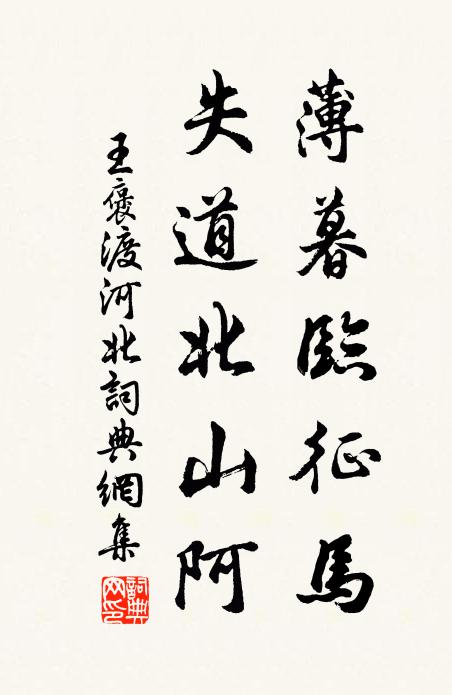 薄暮臨征馬
失道北山阿
王褒渡河北詞典網集
詞典网印